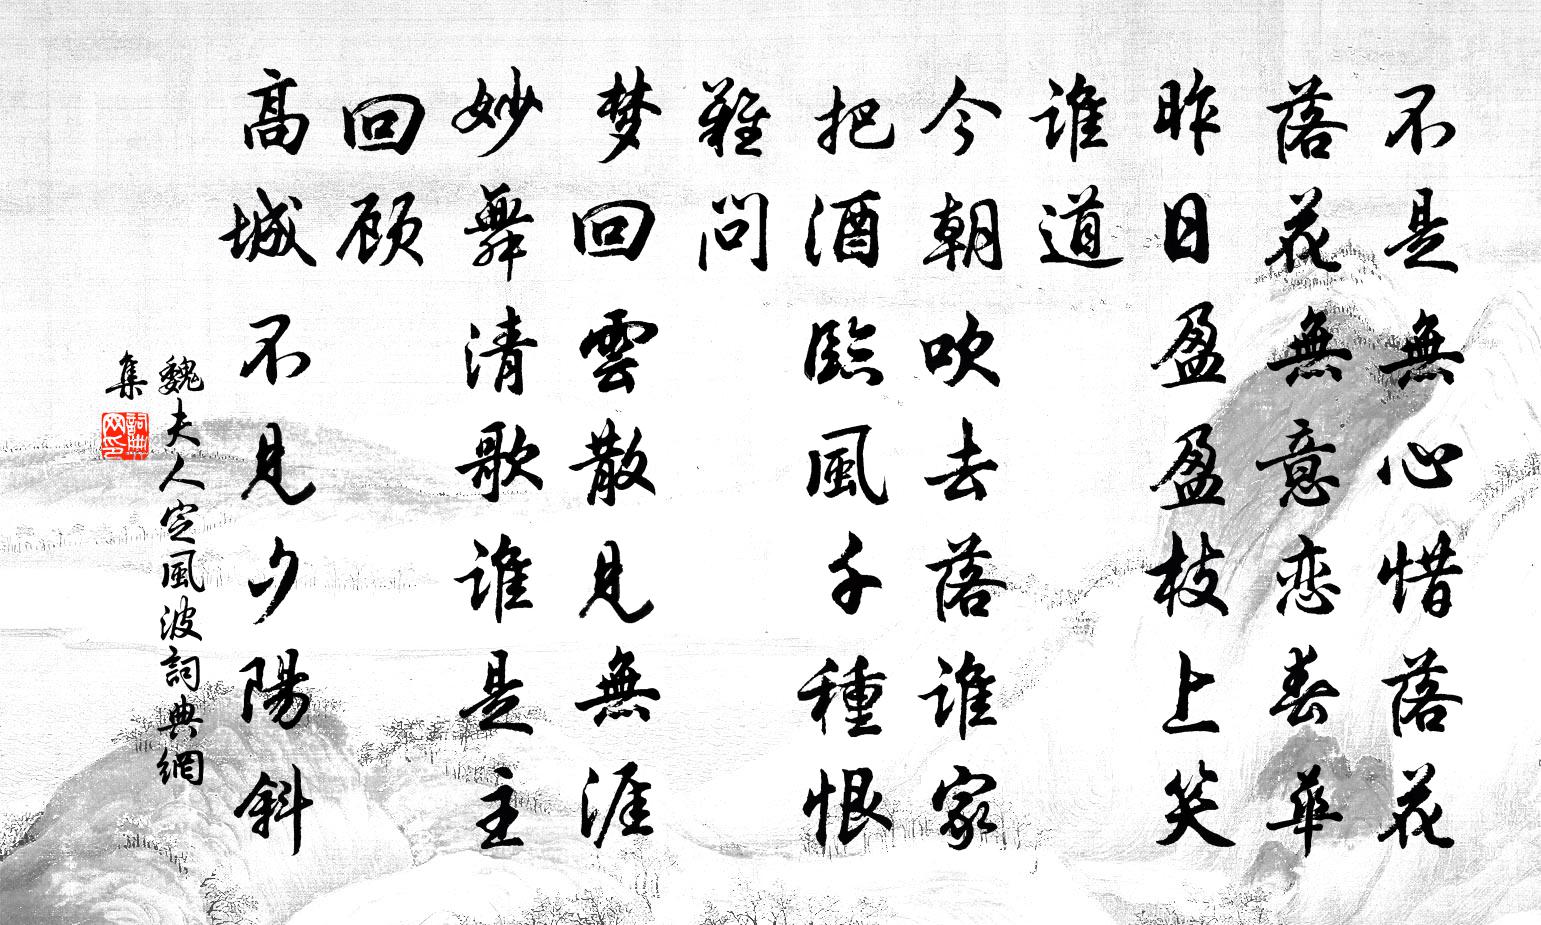 不是無心惜落花
落花無意恋春華
昨日盈盈枝上笑
谁道
今朝吹去落谁家
把酒臨風千種恨
難問
梦回雲散見無涯
妙舞清歌谁是主
回顾
高城不見夕陽斜
魏夫人定風波詞典網
集
詞典网印